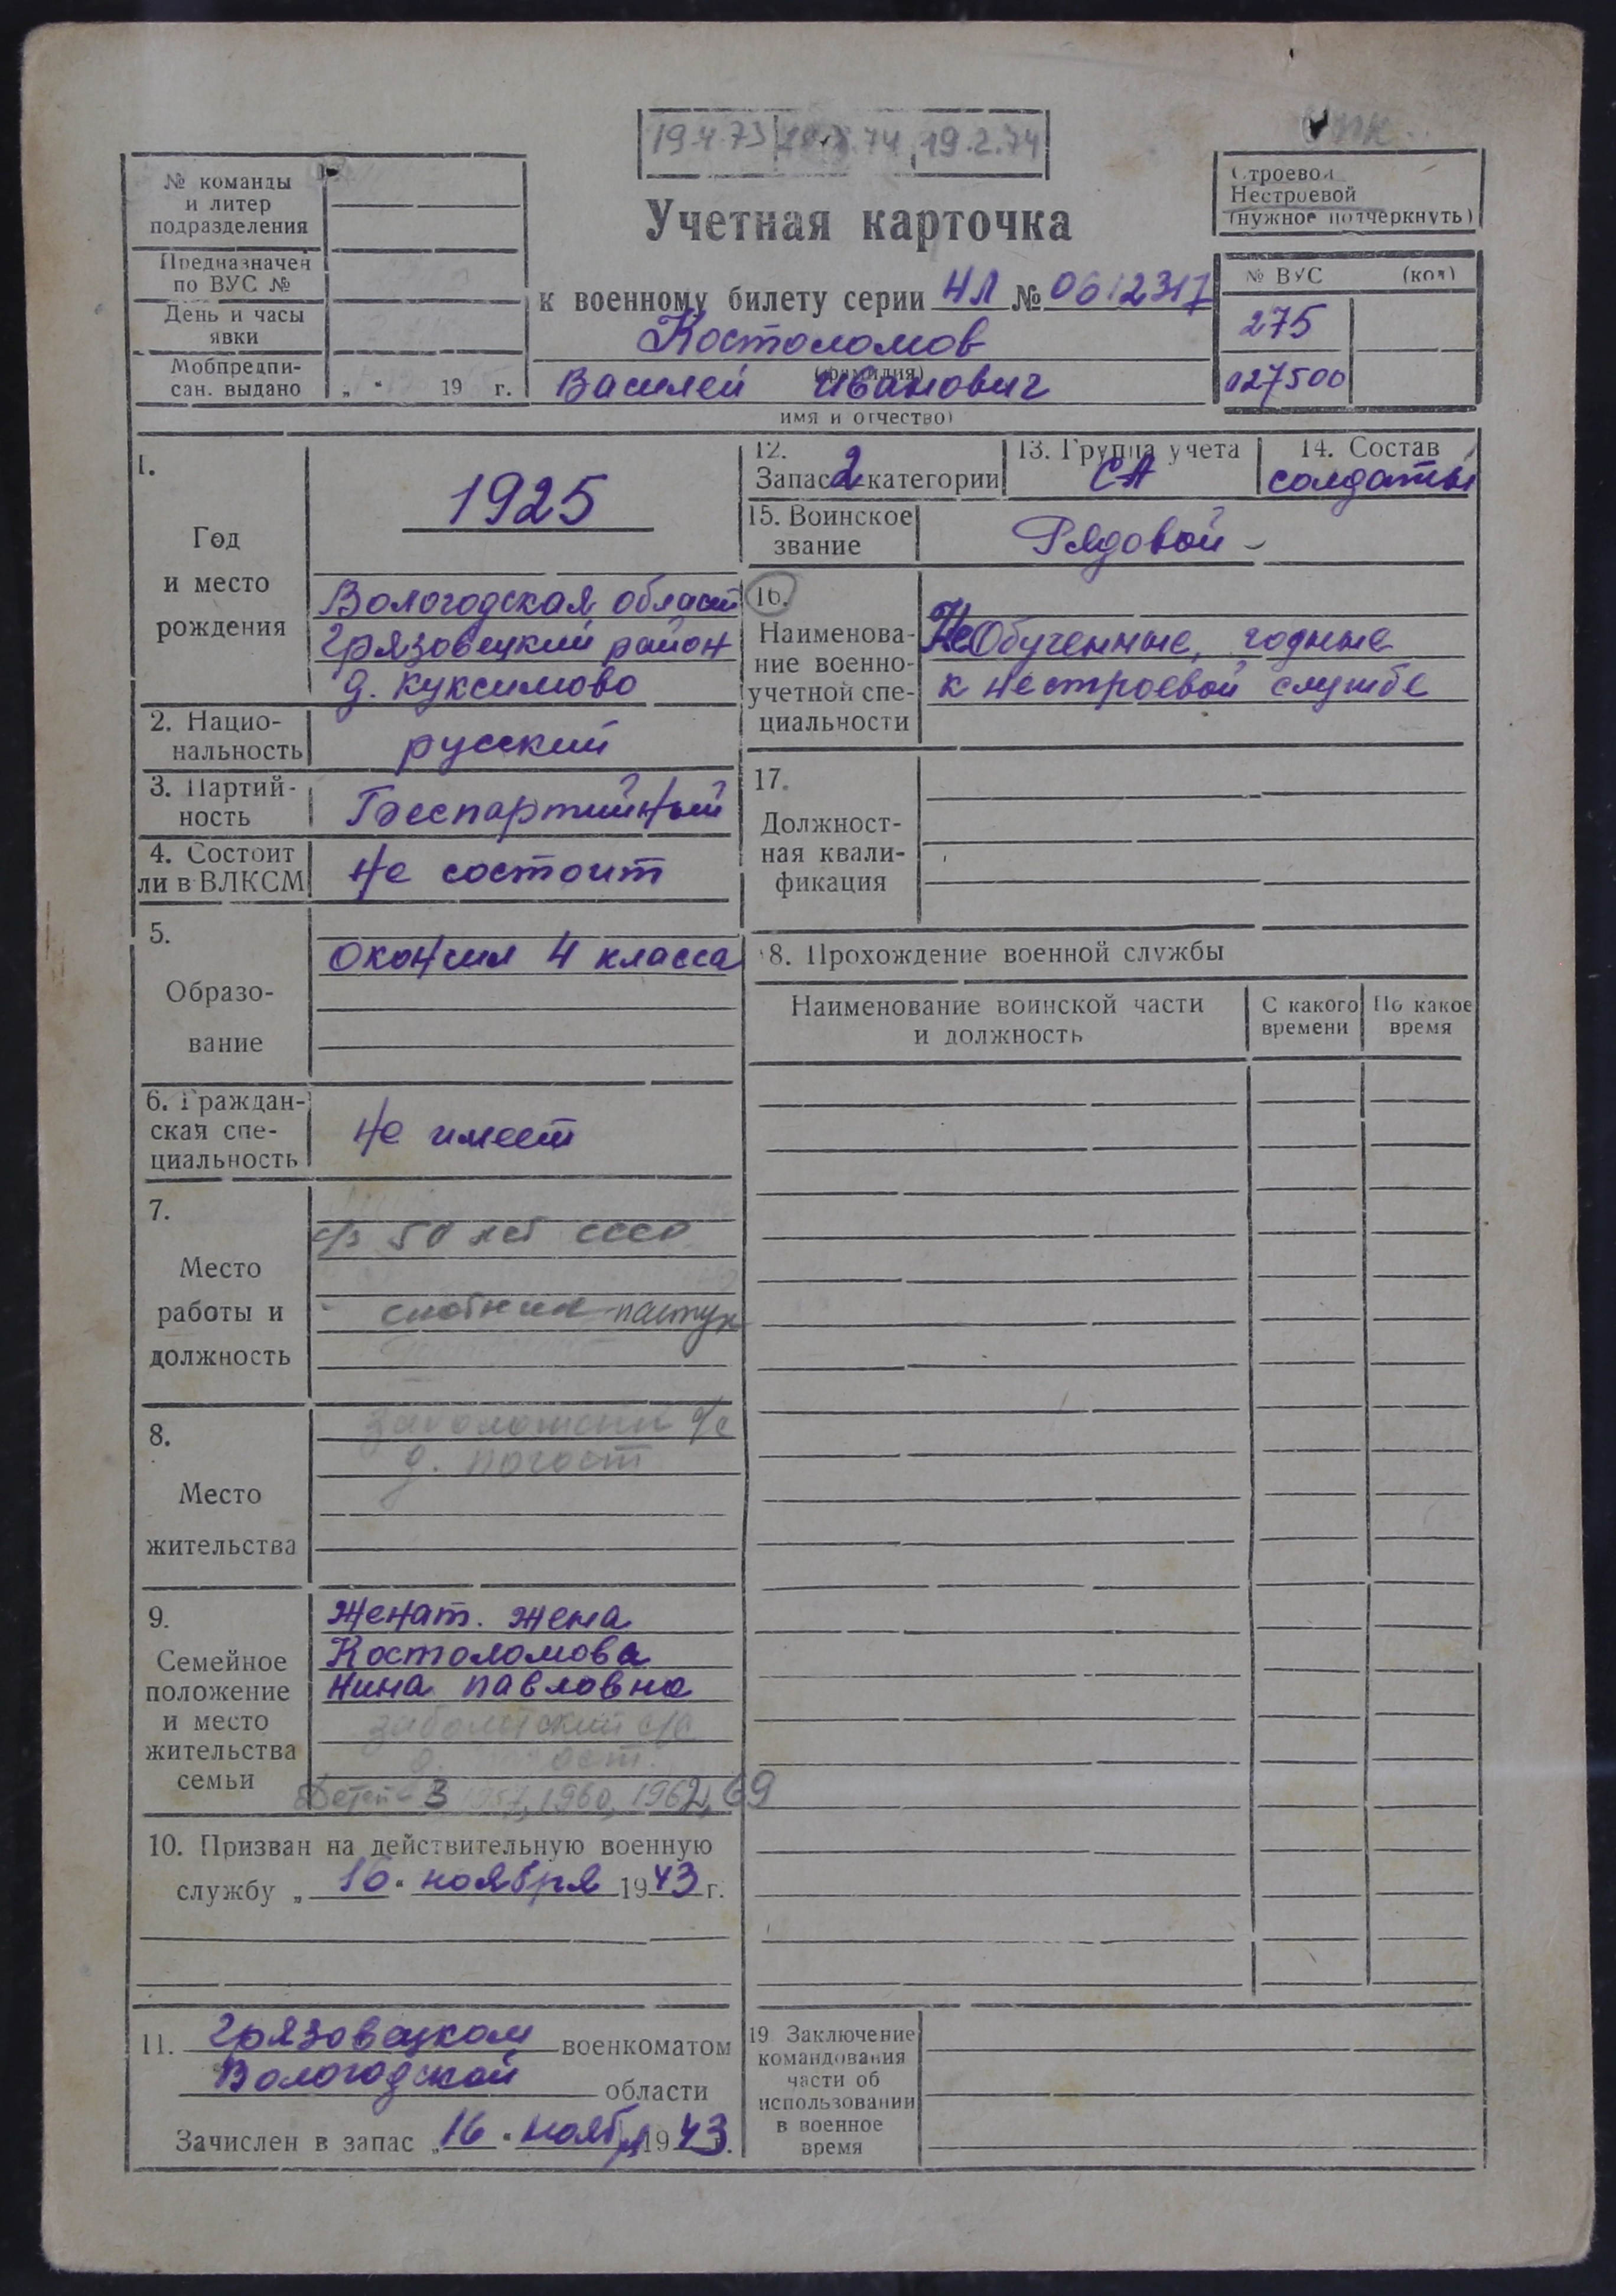 19.4.73 19.2.74
№ команды
и литер
подразделения
Предназначен
по ВУС №
День и часы
явки
Мобпредпи-
сан. выдано „ " 19 г.
Учетная карточка
к военному билету серии НЛ № 0612317
Костоломов
(фамилия)
Василей Иванович
имя и отчество)
Строевой
Нестроевой
(нужное подчеркнуть)
№ ВУС (код)
275
127500
1.
Год
и место
рождения
1925
Вологодская област
Грязовецкий район
д. Куксимово
2. Нацио-
нальность
русский
3. Партий-
ность
Беспартийный
4. Состоит
ли в ВЛКСМ
Не состоит
5.
Образо-
вание
Окончил 4 класса
6. Граждан-
ская спе-
циальность
Не имеет
7.
Место
работы и
должность
с/з 50 лет СССР
скотник-пастух
8.
Место
жительства
д. Погост
9.
Семейное
положение
и место
жительства
семьи
Женат. Жена
Костоломова
Нина Павловна
Заболотский с/с
Детей-3 1957, 1960, 1962, 69
10. Призван на действительную военную
службу „ 16 " ноября 1943 г.
11. Грязовецком военкоматом
Вологодской области
Зачислен в запас „16 " ноября 1943 г.
12.
Запас 2 категории
13. Группа учета
СА
14. Состав
солдаты
15. Воинское
звание
Рядовой
16.
Наименова-
ние военно-
учетной спе-
циальности
Не Обученные, годные
к нестроевой службе
17.
Должност-
ная квали-
фикация
18. Прохождение военной службы
Наименование воинской части
и должность
С какого
времени
По какое
время
19 Заключение
командования
части об
использовании
в военное
время